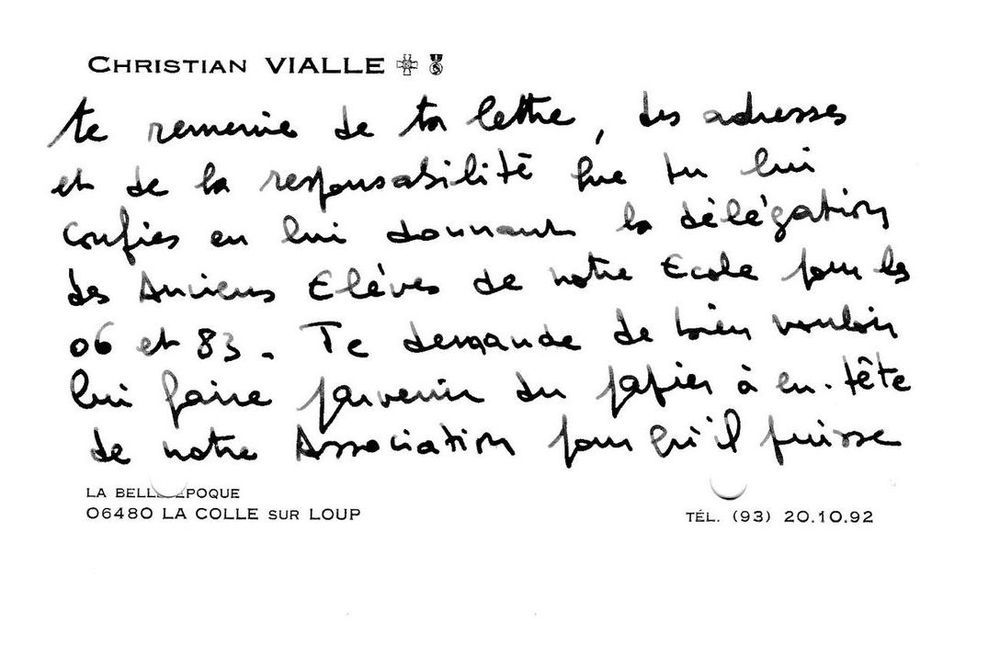 CHRISTIAN VIALLE
te remercie de ta lettre, des adresses
et de la responsabilité que tu lui
confies en lui donnant la délégation
des Anciens Elèves de notre Ecole pour les
06 et 83. Te demande de bien vouloir
lui faire parvenir du papier à en-tête
de notre Association pour qu'il puisse
LA BELLE EPOQUE
06480 LA COLLE SUR LOUP
TÉL. (93) 20.10.92